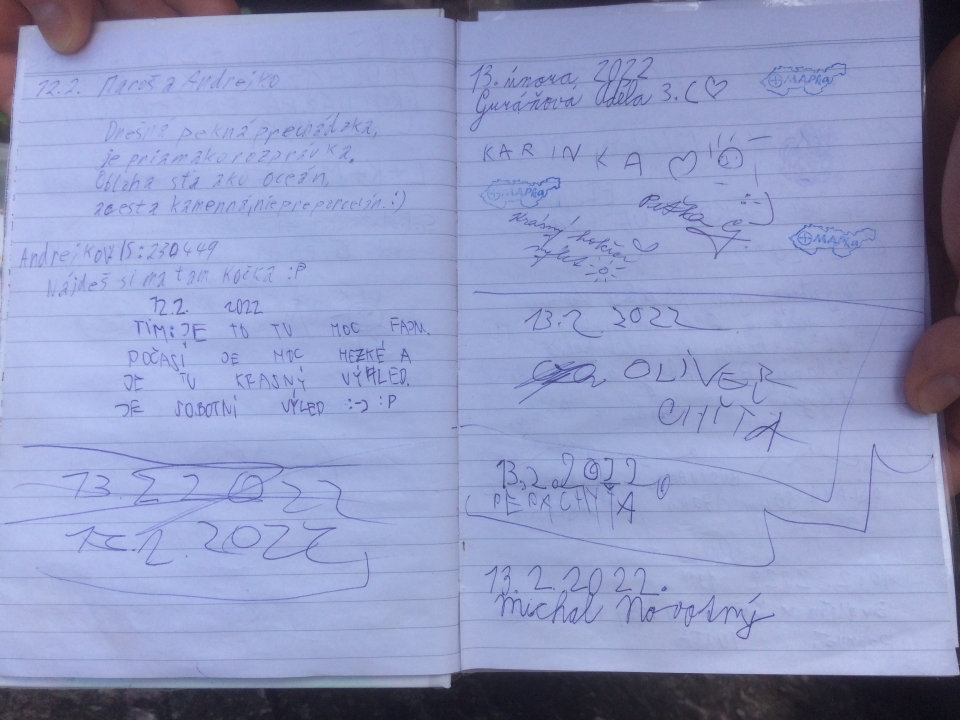 12.2. Maroš a Andrejko
Dnešná pekná prechádzka,
je priam ako rozprávka.
Obloha stá ako oceán,
a cesta kamenná, nie pre porcelán. :)
Andrejkov IS: 230449
Nájdeš si ma tam kočka :P
12.2. 2022
JE TO TU MOC FAJN.
POČASÍ JE MOC HEZKÉ A
JE TU KRASNÝ VÝHLED.
JE SOBOTNÍ VÝLED :-) :P
13.2 2022
2022
13. února 2022
Adéla 3.C ♡
MAPKA
KARINKA ♡
MAPKA
Krásný
výlet
MAPKA
13.2 2022
OLIVER
CHÝŤA
13.2.2022
PEPA CHYŤA
13.2.2022.
Michal Novotný